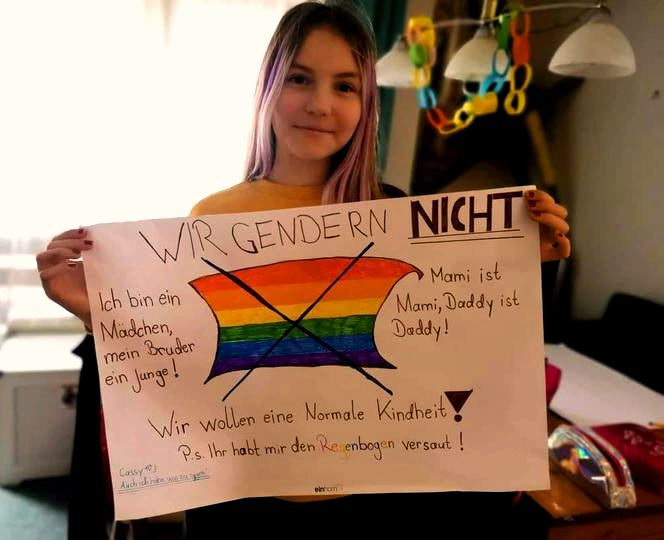 WIR GENDERN NICHT
Ich bin ein
Mädchen,
mein Bruder
ein Junge!
Mami ist
Mami, Daddy ist
Daddy!
Wir wollen eine Normale Kindheit!
P.s. Ihr habt mir den Regenbogen versaut!
Cassy
Auch ich habe was zu sagen"
einhorn